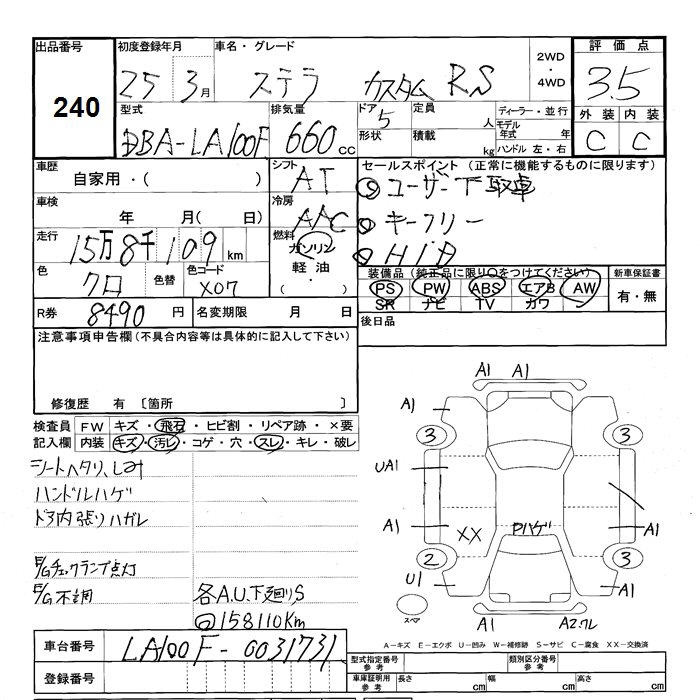 出品番号
240
初度登録年月
25 3月
車名・グレード
ステラ カスタム RS
2WD・4WD
評価点
3.5
型式
DBA-LA100F
排気量
660cc
ドア
5
定員
人
形状
積載
kg
ディーラー・並行
モデル年式 年
ハンドル 左・右
外装
C
内装
C
車歴
自家用・( )
シフト
AT
セールスポイント (正常に機能するものに限ります)
◎ユーザー下取車
◎キーフリー
◎HID
車検
年 月( 日)
冷房
AAC
走行
15万8千109km
燃料
ガソリン
軽油・
色
クロ
色替
色コード
X07
装備品 (純正品に限り○をつけてください)
PS PW ABS エアB AW
SR ナビ TV カワ
新車保証書
有・無
R券
8490円
名変期限 月 日
後日品
注意事項申告欄(不具合内容等は具体的に記入して下さい)
修復歴 有 〔箇所
検査員記入欄
FW キズ・飛石・ヒビ割・リペア跡・×要
内装 キズ・汚レ・コゲ・穴・スレ・キレ・破レ
シートヘタリ、しみ
ハンドルハゲ
ドア内張りハガレ
E/Gチェックランプ点灯
E/G不調
各A.U.下廻りS
◎158110Km
A1 A1
A1
3 3
UA1
A1 A1
XX Pハゲ
2 3
U1 A1
スペア
A1 A2.フレ
A-キズ E-エクボ U-凹み W-補修跡 S-サビ C-腐食 XX-交換済
車台番号
LA100F-0031731
登録番号
型式指定番号 参考
類別区分番号 参考
車庫証明用 参考
長さ cm
幅 cm
高さ cm